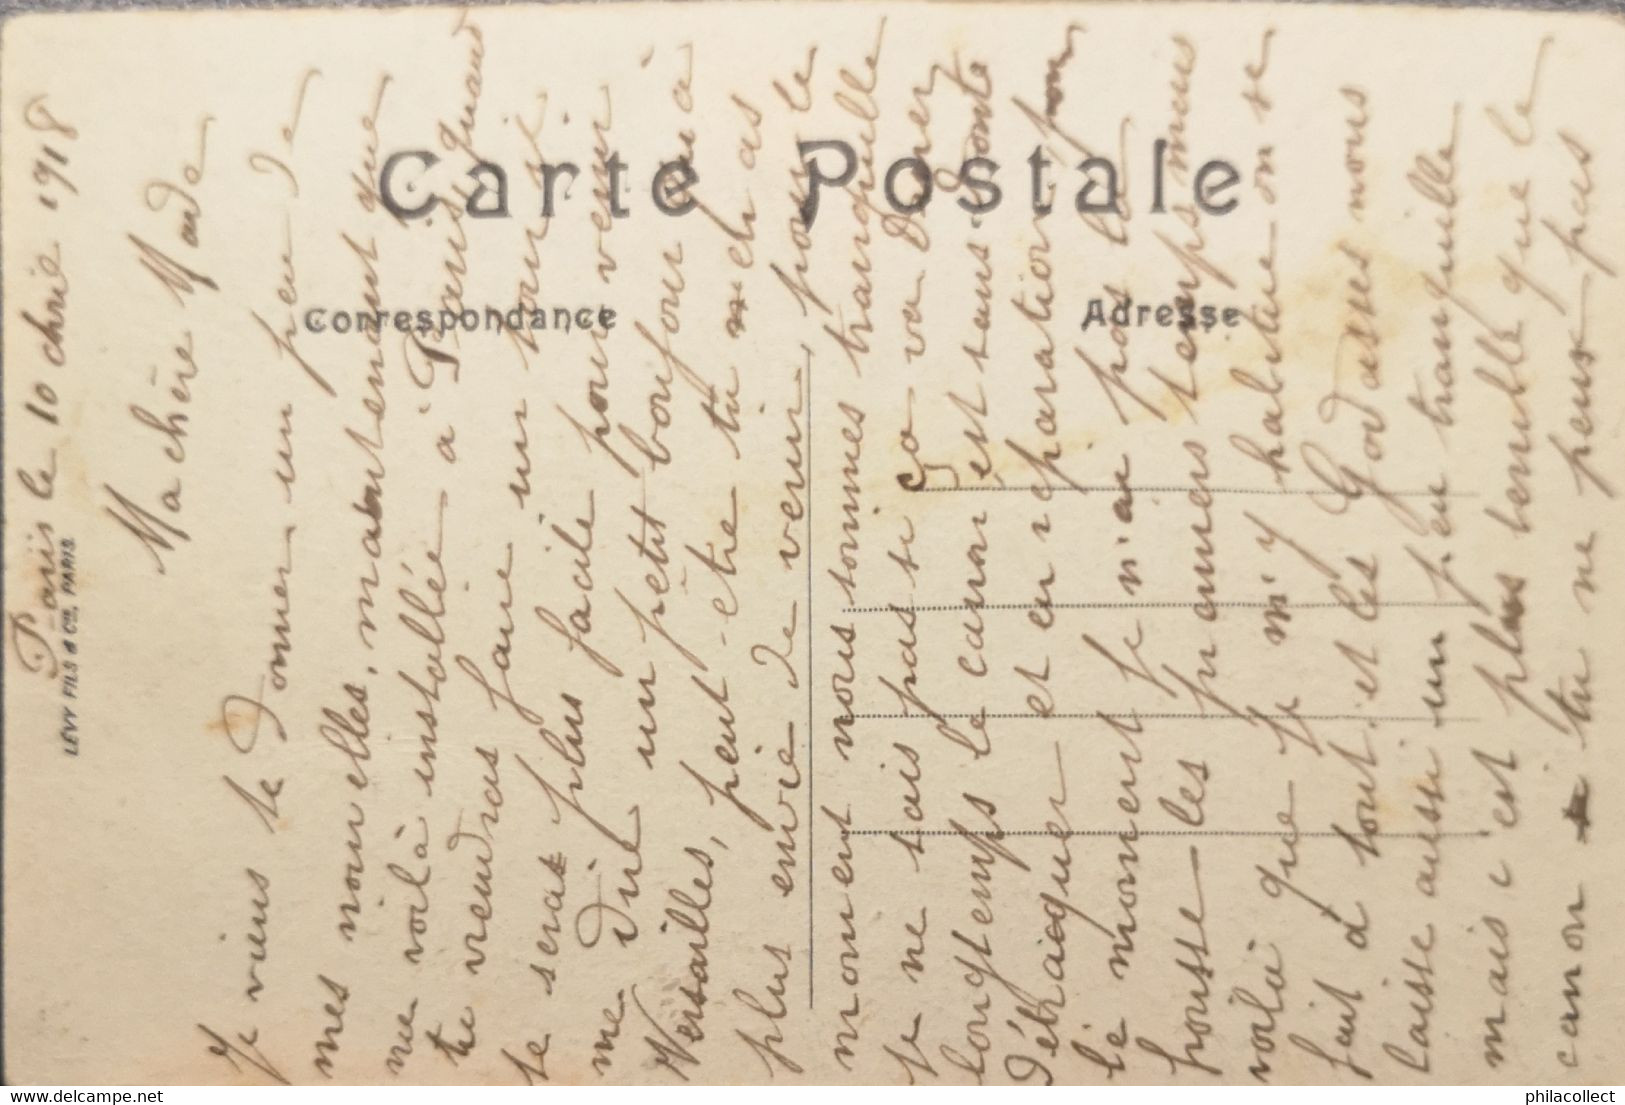 Carte Postale
Correspondance
Adresse
LEVY FILS & Cie, PARIS
Paris le 10 1918
Ma chère Maude
Je viens te donner un peu de
mes nouvelles, maintenant que
me voilà installée à Paris quand
tu viendras faire un tour il
te sera plus facile pour venir
me dire un petit bonjour qu'à
Versailles, peut-être tu n'as
plus envie de venir, pour le
moment nous sommes tranquille
je ne sais pas si ça va durer
longtemps le canon est sans doute
détraquer et en réparation, pour
le moment je n'ai pas la
housse les premiers temps mais
voilà que je m'y habitue on se
fait à tout et les Godasses nous
laisse aussi un peu tranquille
mais c'est plus terrible que le
canon tu ne peux pas
philacollect